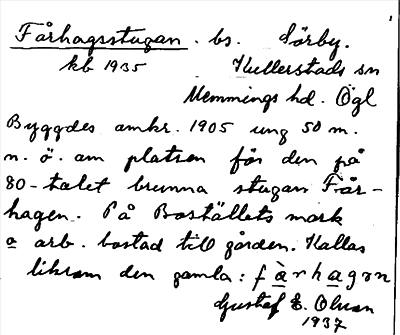 Fårhagsstugan. bs. Sörby.
kb 1935 Kullerstads sn
Memmings hd. Ögl
Byggdes omkr. 1905 ung 50 m.
n. ö. om platsen för den på
80-talet brunna stugan Får-
hagen. På Boställets mark
o arb. bostad till gården. Kallas
liksom den gamla: fàrhagan
Gustaf E. Olsson
1937